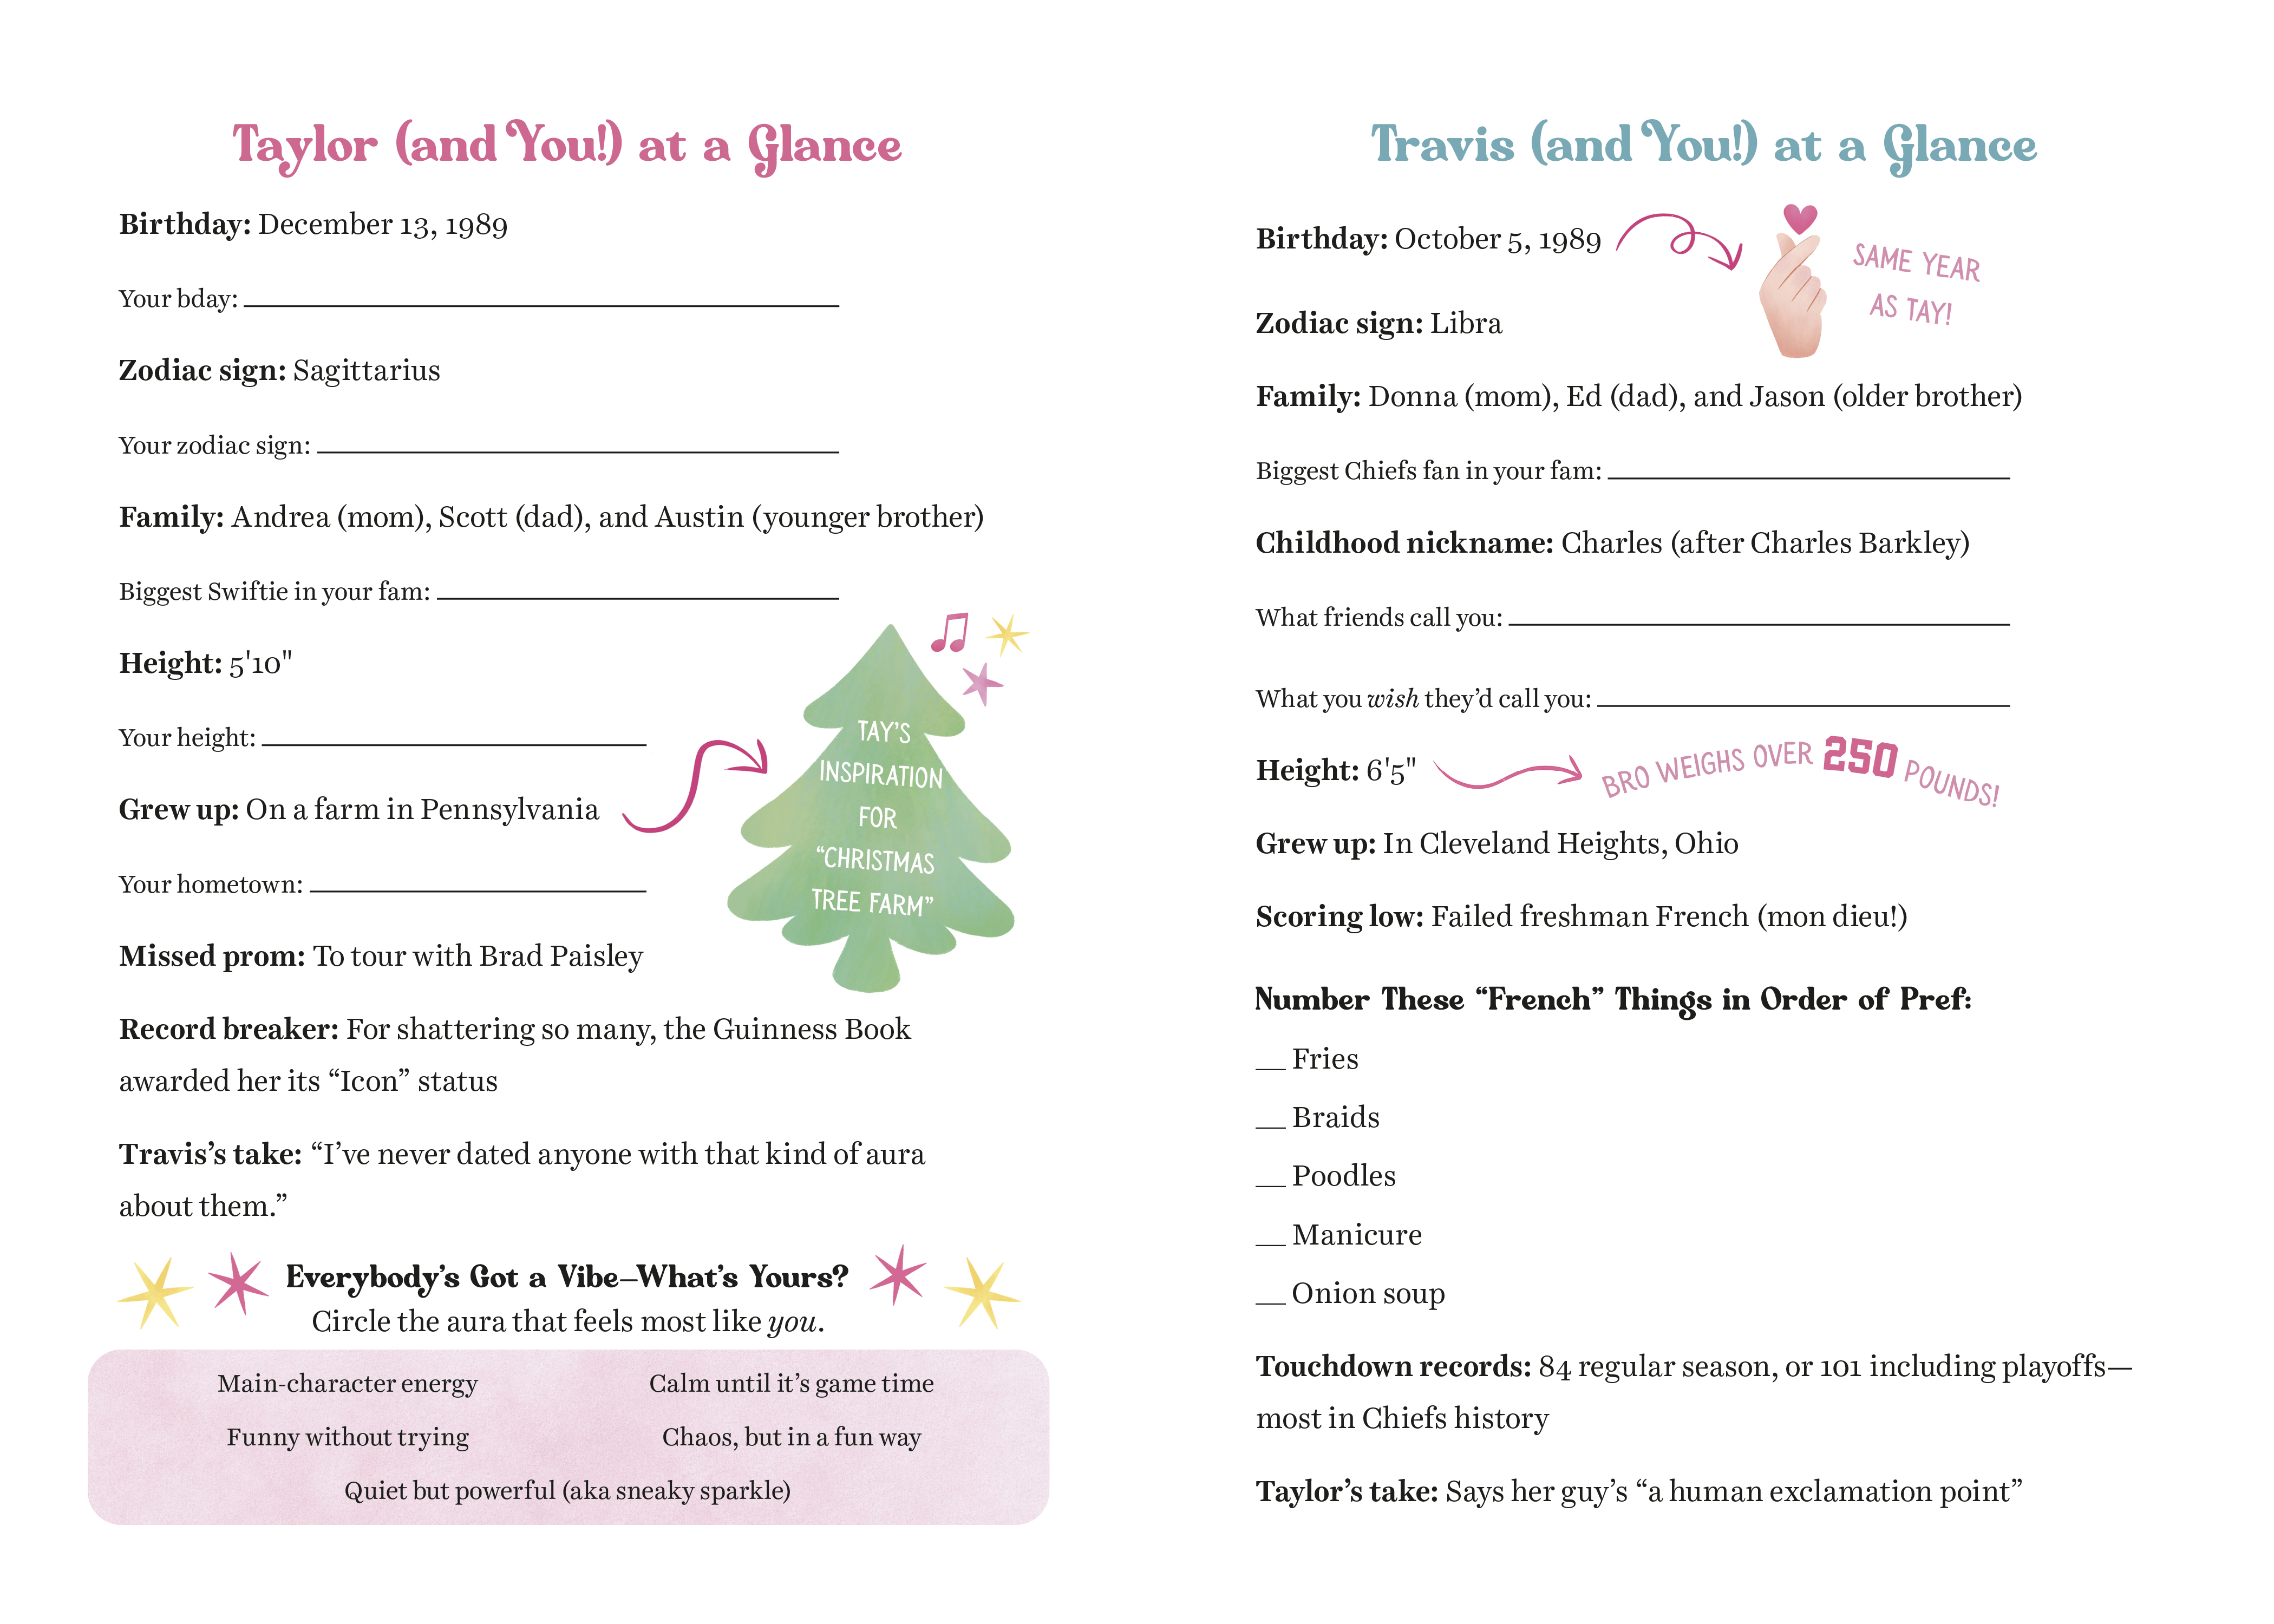 Taylor (and You!) at a Glance
Birthday: December 13, 1989
Your bday:
Zodiac sign: Sagittarius
Your zodiac sign:
Family: Andrea (mom), Scott (dad), and Austin (younger brother)
Biggest Swiftie in your fam:
Height: 5'10"
Your height:
Grew up: On a farm in Pennsylvania
TAY’S
INSPIRATION
FOR
“CHRISTMAS
TREE FARM”
Your hometown:
Missed prom: To tour with Brad Paisley
Record breaker: For shattering so many, the Guinness Book
awarded her its “Icon” status
Travis’s take: “I’ve never dated anyone with that kind of aura
about them.”
Everybody’s Got a Vibe—What’s Yours?
Circle the aura that feels most like you.
Main-character energy
Calm until it’s game time
Funny without trying
Chaos, but in a fun way
Quiet but powerful (aka sneaky sparkle)
Travis (and You!) at a Glance
Birthday: October 5, 1989
SAME YEAR
AS TAY!
Zodiac sign: Libra
Family: Donna (mom), Ed (dad), and Jason (older brother)
Biggest Chiefs fan in your fam:
Childhood nickname: Charles (after Charles Barkley)
What friends call you:
What you wish they’d call you:
Height: 6'5"
BRO WEIGHS OVER 250 POUNDS!
Grew up: In Cleveland Heights, Ohio
Scoring low: Failed freshman French (mon dieu!)
Number These “French” Things in Order of Pref:
__ Fries
__ Braids
__ Poodles
__ Manicure
__ Onion soup
Touchdown records: 84 regular season, or 101 including playoffs—
most in Chiefs history
Taylor’s take: Says her guy’s “a human exclamation point”